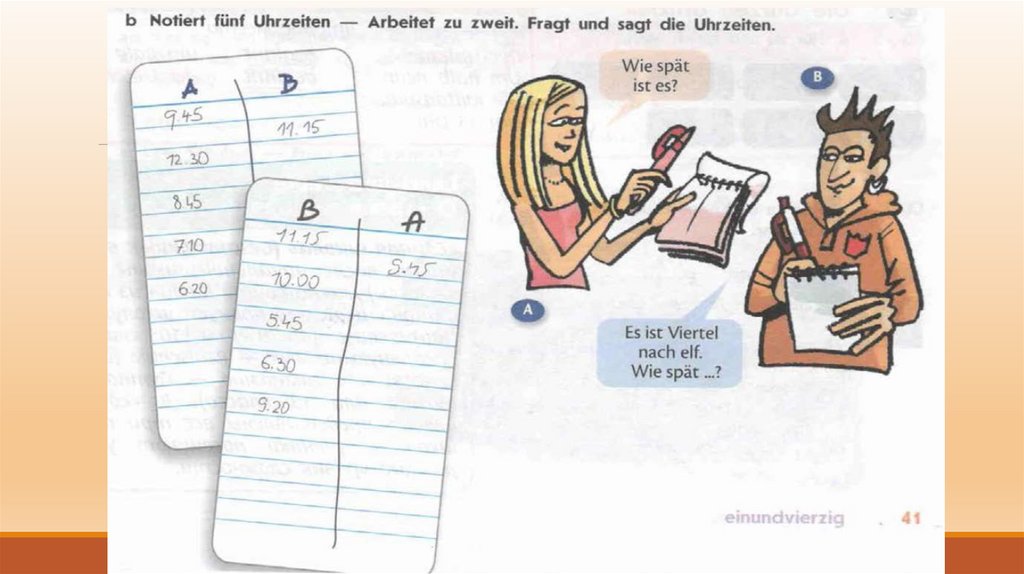 b Notiert fünf Uhrzeiten — Arbeitet zu zweit. Fragt und sagt die Uhrzeiten.
A B
9.45
11.15
12.30
8.45
7.10
6.20
B A
11.15
9.45
10.00
5.45
6.30
9.20
Wie spät
ist es?
B
A
Es ist Viertel
nach elf.
Wie spät ...?
einundvierzig 41